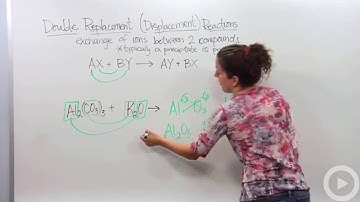 Double Replacement (Displacement) Reactions
exchange of ions between 2 compounds
*typically a precipitate is
AX + BY → AY + BX
Al₂(CO₃)₃ + K₂O → Al O
Al₂O₃